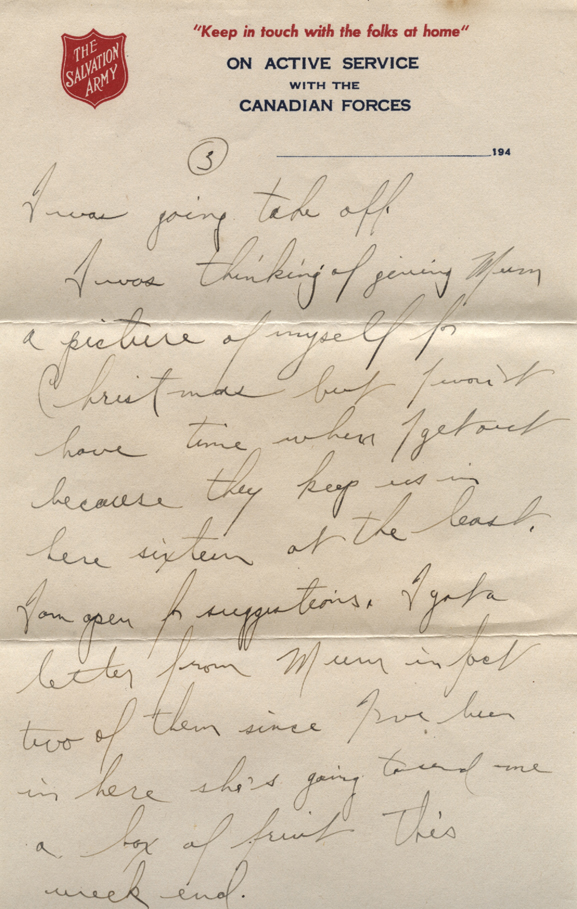 THE
SALVATION
ARMY
"Keep in touch with the folks at home"
ON ACTIVE SERVICE
WITH THE
CANADIAN FORCES
194
3
I was going take off.
I was thinking of giving Mum
a picture of myself for
Christmas but I won't
have time when I get out
because they keep us in
here sixteen at the least.
I am open for suggestions. I got a
letter from Mum in fact
two of them since I've been
in here she's going to send me
a box of fruit this
week end.